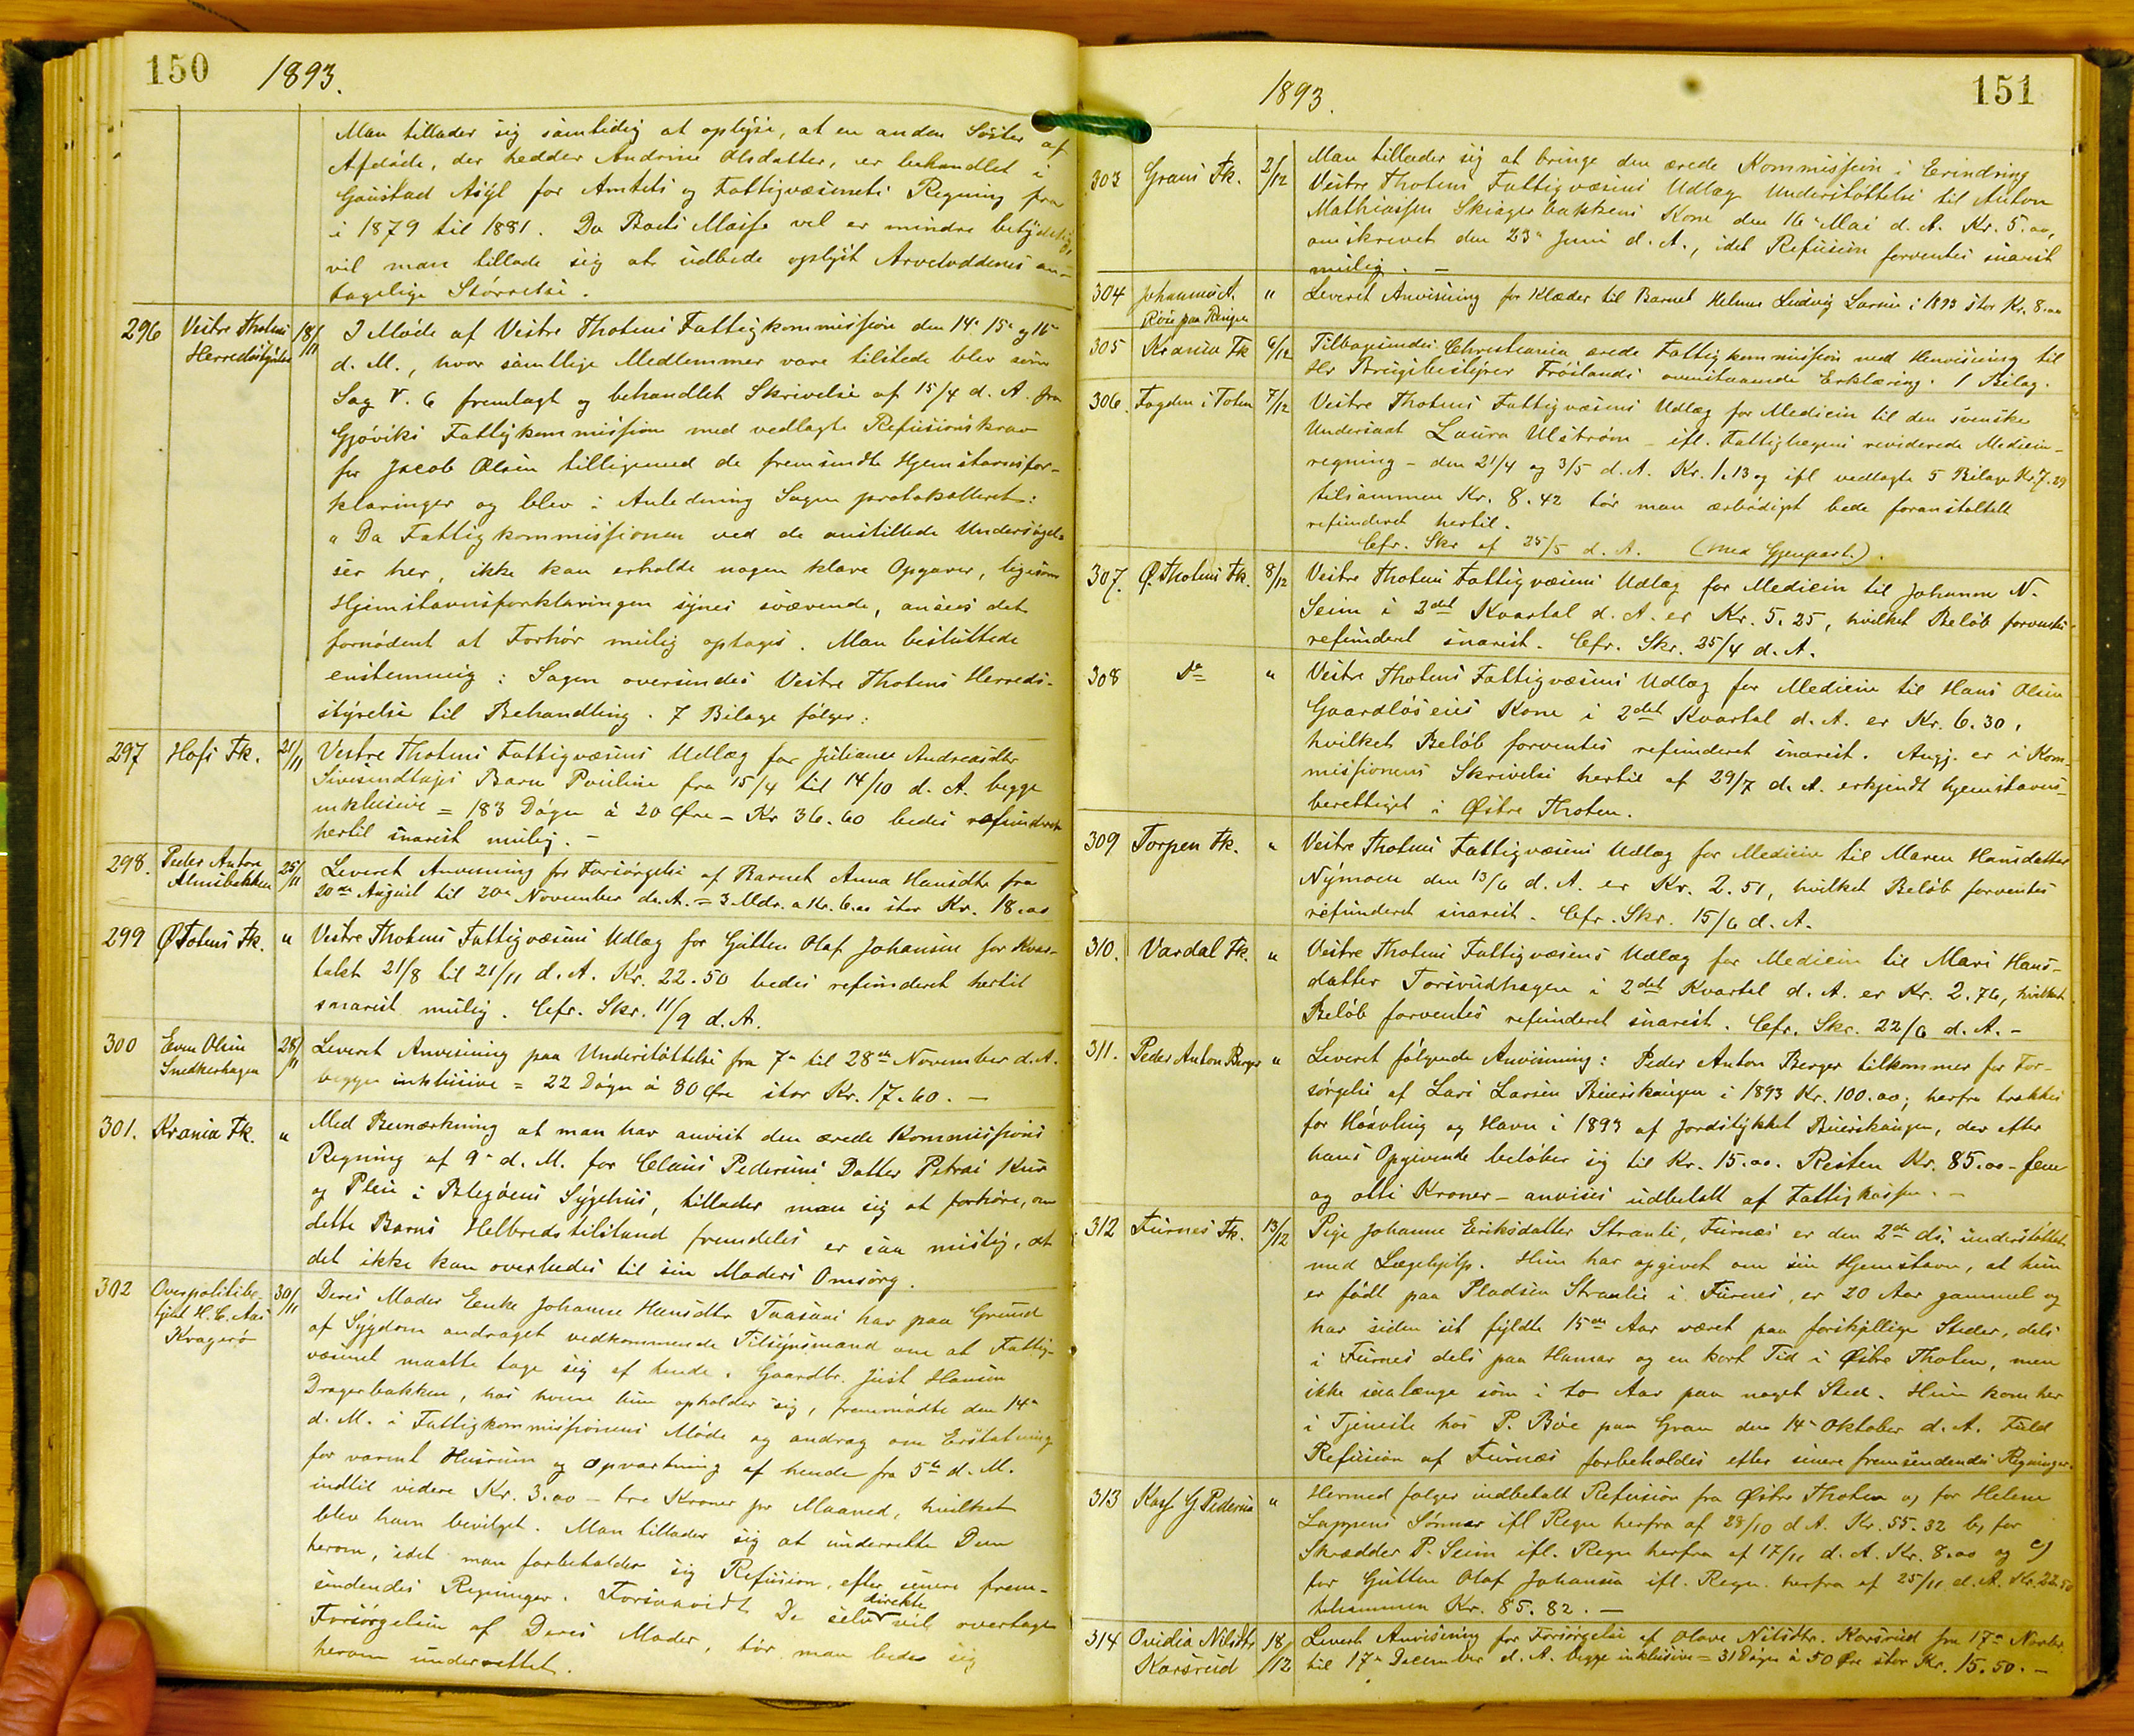 150 1893.
Man tillader sig samtidig at oplyse, at en anden Søster af
Afdøde, der hedder Andrine Olsdatter, er behandlet i
Gaustad Asyl for Amtets og Fattigvæsenets Regning fra
i 1879 til 1881. Da Boets Masse vel er mindre betydelig,
vil man tillade sig at udbede oplyst Arveloddenes an-
tagelige Størrelse.
296 Vestre Thotens Herredsstyrelse 18/11 I Møde af Vestre Thotens Fattigkommission den 14de 15de og 16de
d. M., hvor samtlige Medlemmer vare tilstede blev som
Sag V. 6 fremlagt og behandlet Skrivelse af 15/4 d. A. fra
Gjøviks Fattigkommission med vedlagte Refusionskrav
for Jacob Olsen tilligemed de fremsendte Hjemstavnsfor-
klaringer og blev i Anledning Sagen protokolleret:
"Da Fattigkommissionen ved de anstillede Undersøgel-
ser her, ikke kan erholde nogen klare Opgaver, ligesom
Hjemstavnsforklaringen synes svævende, ansees det
fornødent at Forhør mulig optages. Man besluttede
enstemmig: Sagen oversendes Vestre Thotens Herreds-
styrelse til Behandling. 7 Bilage følger:
297 Hofs Fk. 21/11 Vestre Thotens Fattigvæsens Udlæg for Juliane Andreasdtr
Sivesindtajes Barn Pouline fra 15/4 til 14/10 d. A. begge
inklusive = 183 Døgn à 20 Øre – Kr 36.60 bedes refunderet
hertil snarest mulig. –
298. Peder Anton Alm­sbakken 25/11 Leveret Anvisning for Forsørgelse af Barnet Anna Hansdtr fra
20de August til 20de November d. A. = 3 Mdr. a Kr. 6.00 stor Kr. 18.00
299 Ø Totens Fk. " Vestre Thotens Fattigvæsens Udlæg for Gutten Olaf Johansen for Kvar-
talet 21/8 til 21/11 d. A. Kr. 22.50 bedes refunderet hertil
snarest mulig. Cfr. Skr. 11/9 d. A.
300 Even Olsen Snedkerhagen 28/11 Leveret Anvisning paa Understøttelse fra 7de til 28de November d. A.
begge inklusive = 22 Døgn à 80 Øre stor Kr. 17.60. –
301. Krania Fk. " Med Bemærkning at man har anvist den ærede Kommissions
Regning af 9de d. M. for Claus Pedersens Datter Petras Kur
og Pleie i Blegøens Sygehus, tillader man sig at forhøre, om
dette Barns Helbredstilstand fremdeles er saa mislig, at
det ikke kan overledes til sin Moders Omsorg.
302 Overpolitibe- tjent H. C. Aas Kragerø 30/11 Deres Moder Enke Johanne Hansdtr Taasaas har paa Grund
af Sygdom andraget vedkommende Tilsynsmand om at Fattig-
væsenet maatte tage sig af hende. Gaardbr. Just Hansen
Dragerbakken, hos hvem hun opholder sig, fremmødte den 14de
d. M. i Fattigkommissionens Møde og androg om Erstatning
for varmt Husrum og Opvartning af hende fra 5te d. M.
indtil videre Kr. 3.00 – tre Kroner pr Maaned, hvilket
blev ham bevilget. Man tillader sig at underrette Dem
herom, idet man forbeholder sig Refusion, efter senere frem-
sendendes Regninger. Forsaavidt De selv direkte vil overtage
Forsørgelsen af Deres Moder, tør man bedes sig
herom underrettet.
1893. 151
303 Grans Fk. 2/12 Man tillader sig at bringe den ærede Kommission i Erindring
Vestre Thotens Fattigvæsens Udlæg Understøttelse til Anton
Mathiassen Skiagerbakkens Kone den 16de Mai d. A. Kr. 5.00,
omskrevet den 23de Juni d. A., idet Refusion forventes snarest
mulig. –
304 Johannes A. Røise paa Ringen " Leveret Anvisning for Klæder til Barnet Helmer Ludvig Larsen i 1893 stor Kr. 8.00
305 Krania Fk 6/12 Tilbagesendes Christiania ærede Fattigkommission med Henvisning til
Hr Brugsbestyrer Frøilands ovenstaaende Erklæring. 1 Bilag.
306. Fogden i Toten 7/12 Vestre Thotens Fattigvæsens Udlæg for Medicin til den svenske
Undersaat Laura Ulstrøm – ifl. Fattiglægens reviderede Medicin-
regning – den 21/4 og 3/5 d. A. Kr. 1.13 og ifl vedlagte 5 Bilage Kr. 7.29
tilsammen Kr. 8.42 tør man ærbødigst bede foranstaltet
refunderet hertil.
Cfr. Skr af 25/5 d. A. (med Gjenpart.).
307. Ø. Thotens Fk. 8/12 Vestre Thotens Fattigvæsens Udlæg for Medicin til Johanne N.
Seim i 2det Kvartal d. A. er Kr. 5.25, hvilket Beløb forventes
refunderet snarest. Cfr. Skr. 25/4 d. A.
308 do " Vestre Thotens Fattigvæsens Udlæg for Medicin til Hans Olsen
Gaardløseies Kone i 2det Kvartal d. A. er Kr. 6.30,
hvilket Beløb forventes refunderet snarest. Angj. er i Kom-
missionens Skrivelse hertil af 29/7 d. A. erkjendt hjemstavns-
berettiget i Østre Thoten.
309 Torpen Fk. " Vestre Thotens Fattigvæsens Udlæg for Medicin til Maren Hansdatter
Nymoen den 13/6 d. A. er Kr. 2.51, hvilket Beløb forventes
refunderet snarest. Cfr. Skr. 15/6 d. A.
310. Vardal Fk. " Vestre Thotens Fattigvæsens Udlæg for Medicin til Mari Hans-
datter Torsrudhagen i 2det Kvartal d. A. er Kr. 2.76, hvilket
Beløb forventes refunderet snarest. Cfr. Skr. 22/6 d. A. –
311. Peder Anton Berger " Leveret følgende Anvisning: Peder Anton Berger tilkommer for For-
sørgelse af Lars Larsen Buerskaugen i 1893 Kr. 100.00; herfra trækkes
for Høavling og Havn i 1893 af Jordstykket Buerskaugen, der efter
hans Opgivende beløber sig til Kr. 15.00. Resten Kr. 85.00 – fem
og otti Kroner – anvises udbetalt af Fattigkassen. –
312 Furnes Fk. 13/12 Pige Johanne Eriksdatter Stranli, Furnes er den 2de ds. understøttet
med Lægehjelp. Hun har opgivet om sin Hjemstavn, at hun
er født paa Pladsen Stranlie i Furnes, er 20 Aar gammel og
har siden sit fyldte 15de Aar været paa forskjellige Steder, dels
i Furnes dels paa Hamar og en kort Tid i Østre Thoten, men
ikke saalænge som i to Aar paa noget Sted. Hun kom her
i Tjeneste hos P. Bøe paa Gran den 14de Oktober d. A. Fuld
Refusion af Furnes forbeholdes efter senere fremsendendes Regninger.
313 Kass. G Pedersen " Hermed følger indbetalt Refusion fra Østre Thoten a) for Helene
Lappens Sønner ifl Regn herfra af 28/10 d A. Kr. 55.32 b, for
Skrædder P. Seim ifl. Regn herfra af 17/11 d. A. Kr. 8.00 og c)
for Gutten Olaf Johansen ifl. Regn. herfra af 25/11 d. A. Kr. 22.50
tilsammen Kr. 85.82. –
314 Ovidia Nilsdtr Karsrud 18/12 Leveret Anvisning for Forsørgelse af Olave Nilsdtr. Karsrud fra 17de Novbr.
til 17de December d. A. begge inklusive = 31 Døgn à 50 Øre stor Kr. 15.50. –